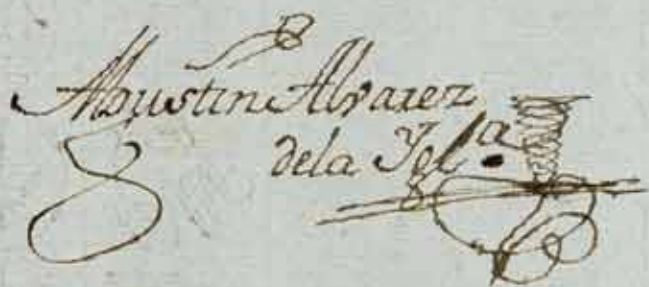 Agustin Alvarez
dela Ygl.ª